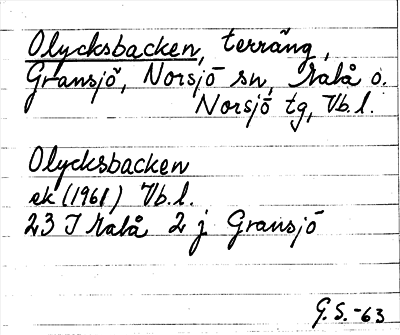 Olycksbacken, terräng,
Gransjö, Norsjö sn, Malå o.
Norsjö tg, Vb.l.
Olycksbacken
ek (1961) Vb.l.
23 J Malå 2 j Gransjö
G.S.-63